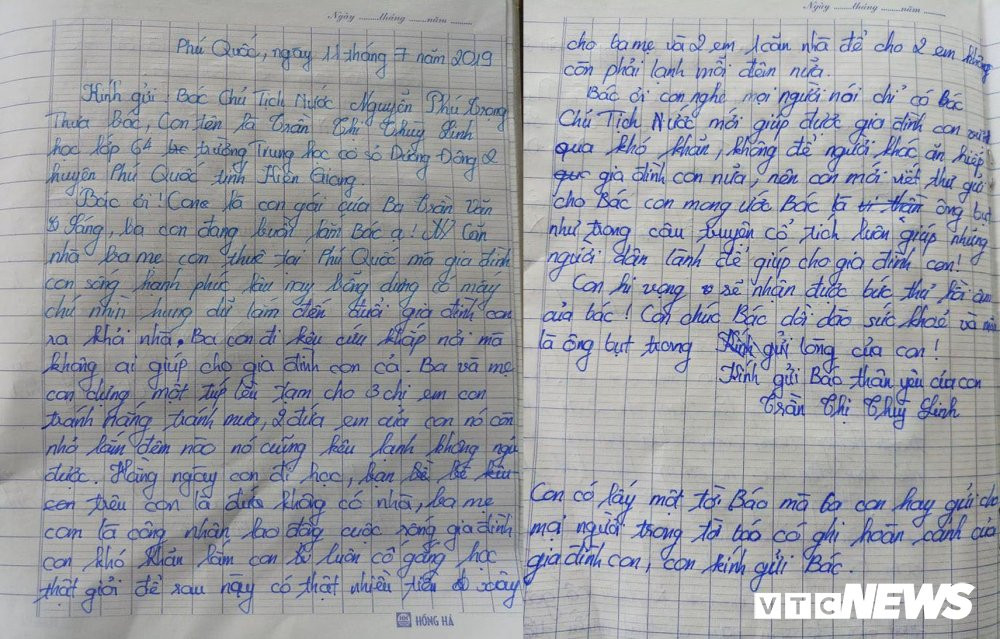 Ngày ........tháng ........năm ........
Phú Quốc, ngày 11 tháng 7 năm 2019
Kính gửi: Bác Chủ Tịch Nước Nguyễn Phú Trọng
Thưa bác, Con tên là Trần Thị Thùy Linh
học lớp 6A trường Trung học cơ sở Dương Đông 2
huyện Phú Quốc tỉnh Kiên Giang.
Bác ơi! Con là con gái của Ba Trần Văn
Sáng, ba con đang buồn lắm Bác ạ! Căn
nhà ba mẹ con thuê tại Phú Quốc mà gia đình
con sống hạnh phúc lâu nay bằng dưng có mấy
chú nhìn hung dữ lắm đến đuổi gia đình con
ra khỏi nhà. Ba con đi kêu cứu khắp nơi mà
không ai giúp cho gia đình con cả. Ba và mẹ
con dựng một túp lều tạm cho 3 chị em con
tránh nắng tránh mưa, 2 đứa em của con nó còn
nhỏ lắm đêm nào nó cũng kêu lạnh không ngủ
được. Hằng ngày con đi học, bạn bè
trêu con là đứa không có nhà, ba mẹ
con là công nhân lao động cuộc sống gia đình
con khó khăn lắm con luôn cố gắng học
thật giỏi để sau này có thật nhiều tiền xây
HỒNG HÀ
Ngày ........tháng ........năm ........
cho ba mẹ và 2 em 1 căn nhà để cho 2 em không
còn phải lạnh mỗi đêm nữa.
Bác ơi con nghe mọi người nói chỉ có bác
Chủ Tịch Nước mới giúp được gia đình con vượt
qua khó khăn, không để người khác ăn hiếp
gia đình con nửa, nên con mới viết thư gửi
cho Bác con mong ước Bác là ông bụt
như trong câu truyện cổ tích luôn giúp những
người dân lành để giúp cho gia đình con!
Con hi vọng sẽ nhận được bức thư hồi âm
của bác! Con chúc Bác dồi dào sức khoẻ và mãi
là ông bụt trong lòng của con!
Kính gửi Bác thân yêu của con
Trần Thị Thùy Linh
Con có lấy một tờ Báo mà ba con hay gửi cho
mọi người trong tờ báo có ghi hoàn cảnh của
gia đình con, con kính gửi Bác.
VTC NEWS